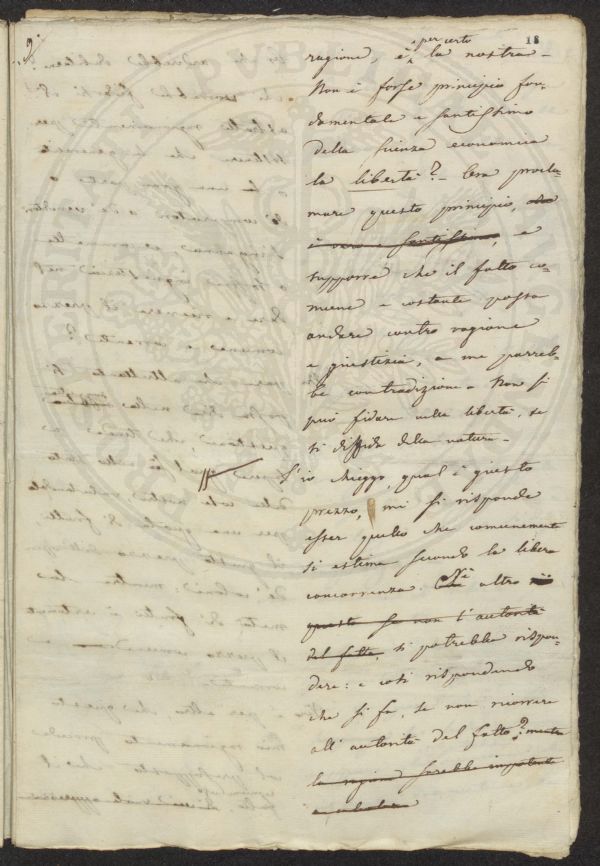 2.
18
ragione, è per certo la nostra -
Non è forse principio fon-
damentale e santissimo
della scienza economica
la libertà? - Ora procla-
mare questo principio, che
è vero e santissimo, e
supporre che il fatto co-
mune e costante possa
andare contro ragione
e giustizia, a me parreb-
be contradizione - Non si
può fidare nella libertà, se
si diffida della natura -
S'io chieggo, qual è giusto
prezzo, mi si risponde
esser quello che comunemente
si estima secondo la libera
concorrenza. Nè altro
questo se non l'autorità
del fatto, si potrebbe rispon-
dere: e così rispondendo
che si fa, se non ricorrere
all'autorità del fatto? mentre
la ragione sarebbe impotente